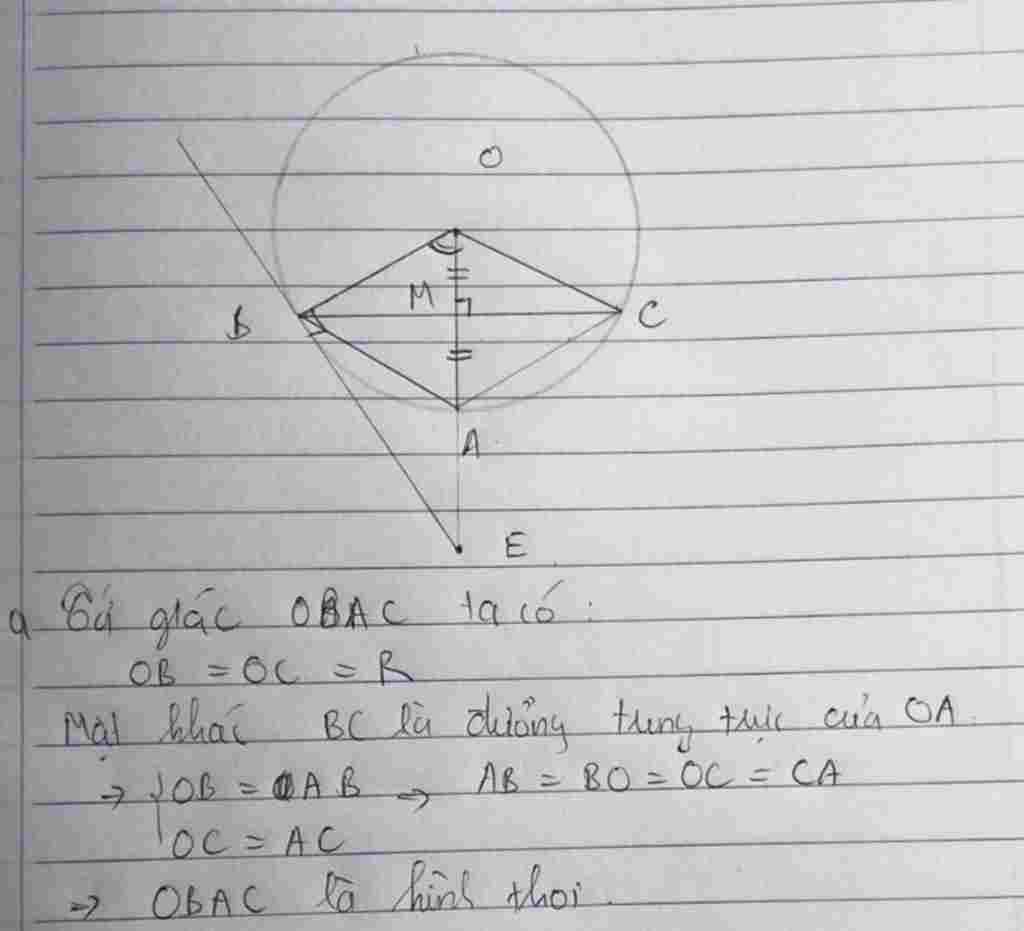 O
M
B
C
A
E
a Tứ giác OBAC ta có :
OB = OC = R
Mặt khác BC là đường trung trực của OA.
→ { OB = AB → AB = BO = OC = CA
OC = AC
→ OBAC là hình thoi.